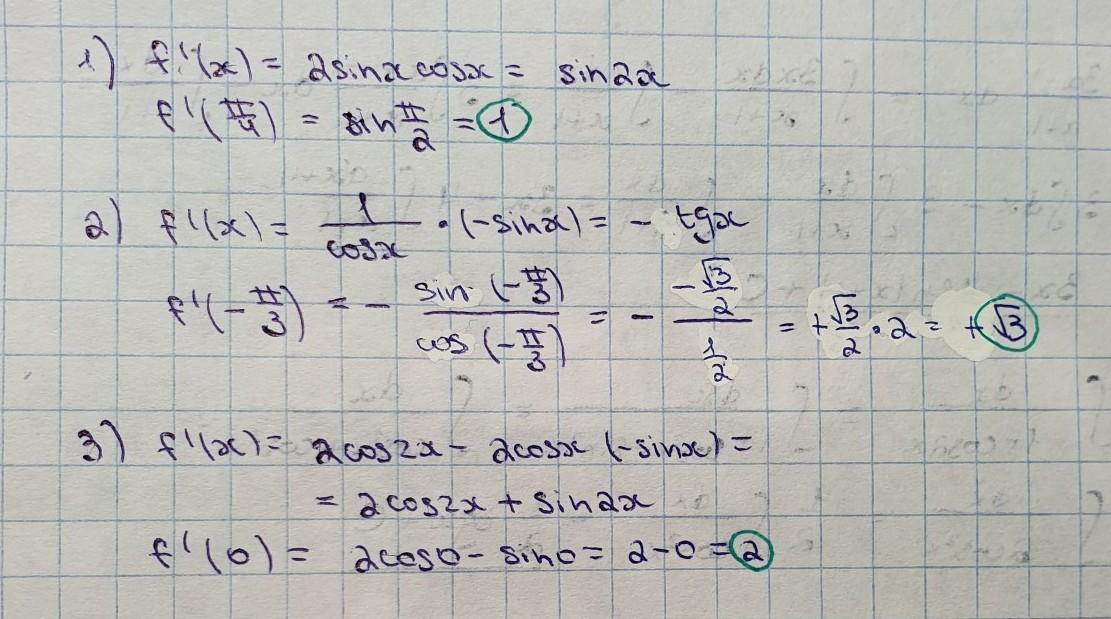 1) f'(x) = 2sinx cosx = sin2x
f'(π/4) = sin π/2 = 1
2) f'(x) = 1/cosx · (-sinx) = - tgx
f'(-π/3) = - sin(-π/3)/cos(-π/3) = - (-√3/2)/(1/2) = +√3/2 · 2 = +√3
3) f'(x) = 2cos2x - 2cosx (-sinx) =
= 2cos2x + sin2x
f'(0) = 2cos0 - sin0 = 2-0 = 2